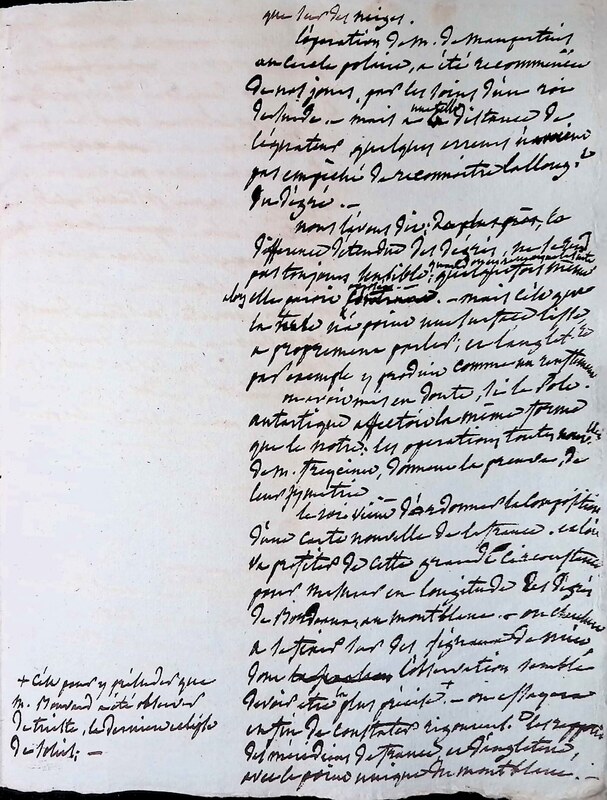 que sur des neiges.
L'opération de M. de Maupertuis
au cercle polaire, a été recommencée
de nos jours, par les soins d'un roi
de Suède. – mais à une telle distance de
l'équateur quelques erreurs n'
pas empêché de reconnoitre l'allong.t
du dégré. –
nous l'avons dit: la
différence d'étendue des degrés, ne
pas toujours sensible; quelquefois même
elle paroit . – mais c'est que
la terre n'a point une surface lisse
a proprement parler; et l'angleterre
par exemple y produit comme un renflement
on avoit mis en doute, si le Pole
antartique affectoit la même forme
que le notre: les operations toutes nouvelles
de M. Freycinet, donnent la preuve, de
leur symétrie.
le roi vient d'ordonner la composition
d'une carte nouvelle de la france. et l'on
va profiter de cette grande circonstance
pour mesurer en longitude les dégrés
de Bordeaux au mont blanc. – on cherchera
a la tirer sur des signaux de
dont l'observation semble
devoir être la plus précise + – on essayera
enfin de constater rigoureusem.t les rapports
des méridiens de france, et d'angleterre,
avec le point unique du mont blanc. –
+ c'est pour y préluder que
M. Bouvard a été observer
de trieste, la derniere eclipse
de soleil. –